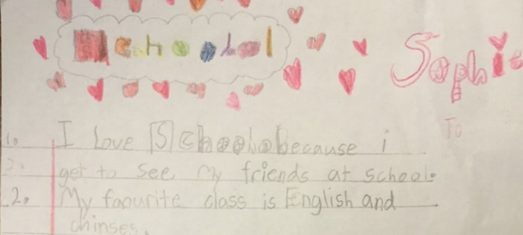 School
Sophie
To
1. I love School because i
2. get to see my friends at school.
2. My favourite class is English and
chinses.